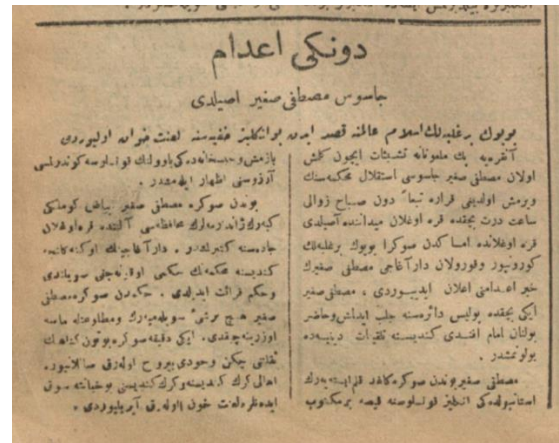 دونكی اعدام
جاسوس مصطفی صغیر اصیلدی
بویوك بر غلبه‌لك اسلام عالمنه قصد ایدن بو انكلیز خفیه‌سنه لعنت خوان اولیوردی
آنقره‌یه پك ملعونانه تشبثات ایچون كلش
اولان مصطفی صغیر جاسوسی استقلال محكمه‌سنك
ویرمش اولدیغی قراره تبعاً دون صباح زوالی
ساعت درت بچقده قره اوغلان میداننده آصیلدی
قره اوغلانده صوكرا بویوك بر غلبه‌لك
كورونیور وقورولان دار آغاجی مصطفی صغیرك
خبر اعدامنی اعلان ایدییوردی . مصطفی صغیر
ایكی بچقده پولیس دائره‌سنه جلب ایدلمش وحاضر
بولنان امام افندی كندیسنه تلقینات دینیه‌ده
بولونمشدر .
مصطفی صغیر بوندن صوكره كاغد قلم ایسته‌یه‌رك
استانبولده‌كی انكلیز قونسلوسنه قیصه بر مكتوب
یازمش و قونسلوسه كوندرلمسی
آرزوسنی اظهار ایله‌مشدر .
بوندن صوكره مصطفی صغیر بیاض كوملكی
كیه‌رك ژاندارمه‌لرك محافظه‌سی آلتنده قره اوغلان
جاده‌سنه كتیرلدی . دار آغاجینك اوكنه كلنجه
كندیسنه محكمه‌نك حكمی
وحكم قرائت ایدلدی . حكمدن صوكره مصطفی
صغیر هیچ بر شی سویله‌میه‌رك ومطاوعتله ماصه
اوزرینه چیقدی . ایكی دقیقه صوكره بوتون كناهك
ثقلتی چكن وجودی بی روح اوله‌رق صاللانیور .
اهالی كرك كندیسنه وكرك كندیسنی بو خیانته سوق
ایدنلره لعنت خوان اوله‌رق آیریلیوردی .